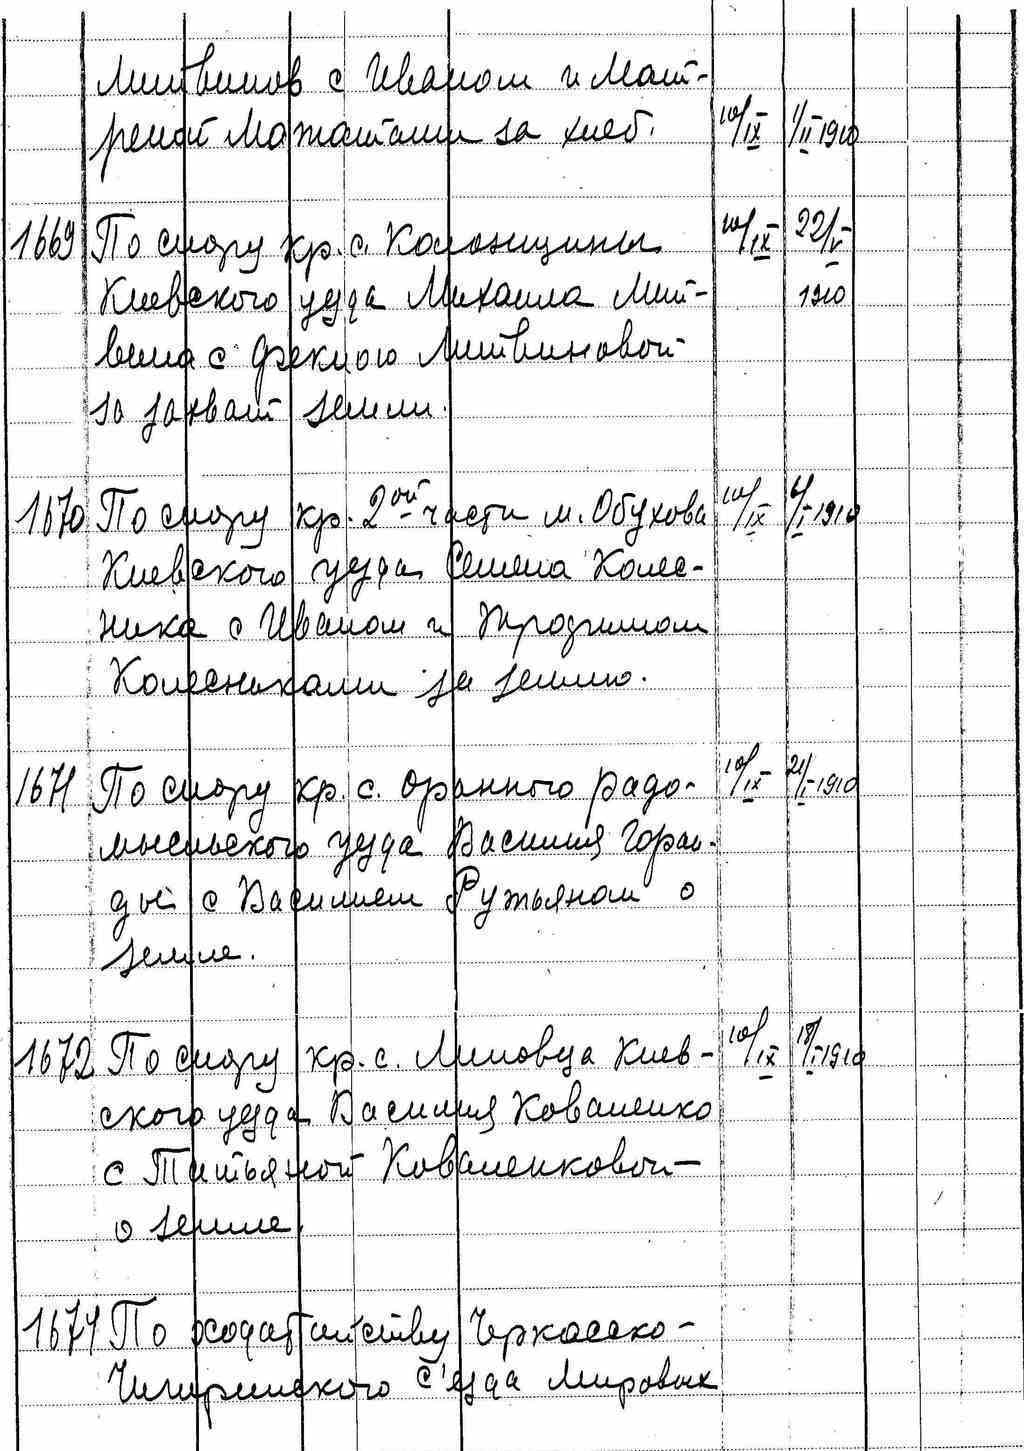 Литвинов с Иваном и Мат-
реной Мажатами за хлеб. 10/IX 1/II 1910
1669 По спору кр. с. Колонщины 10/IX 22/V
Киевского уезда Михаила Лит- 1910
вина с Феклою Литвиновой
за захват земли.
1670 По спору кр. 2ой части м. Обухова 10/IX 6/I 1910
Киевского уезда Семена Колес-
ника с Иваном и Трофимом
Колесниками за землю.
1671 По спору кр. с. Оранного Радо- 10/IX 21/I 1910
мысльского уезда Василия Горай-
ды с Василием Ружьяном о
земле.
1672 По спору кр. с. Липовца Киев- 10/IX 18/I 1910
ского уезда Василия Коваленко
с Татьяной Коваленковой
о земле.
1674 По ходатайству Черкасско-
Чигиринского С'езда Мировых